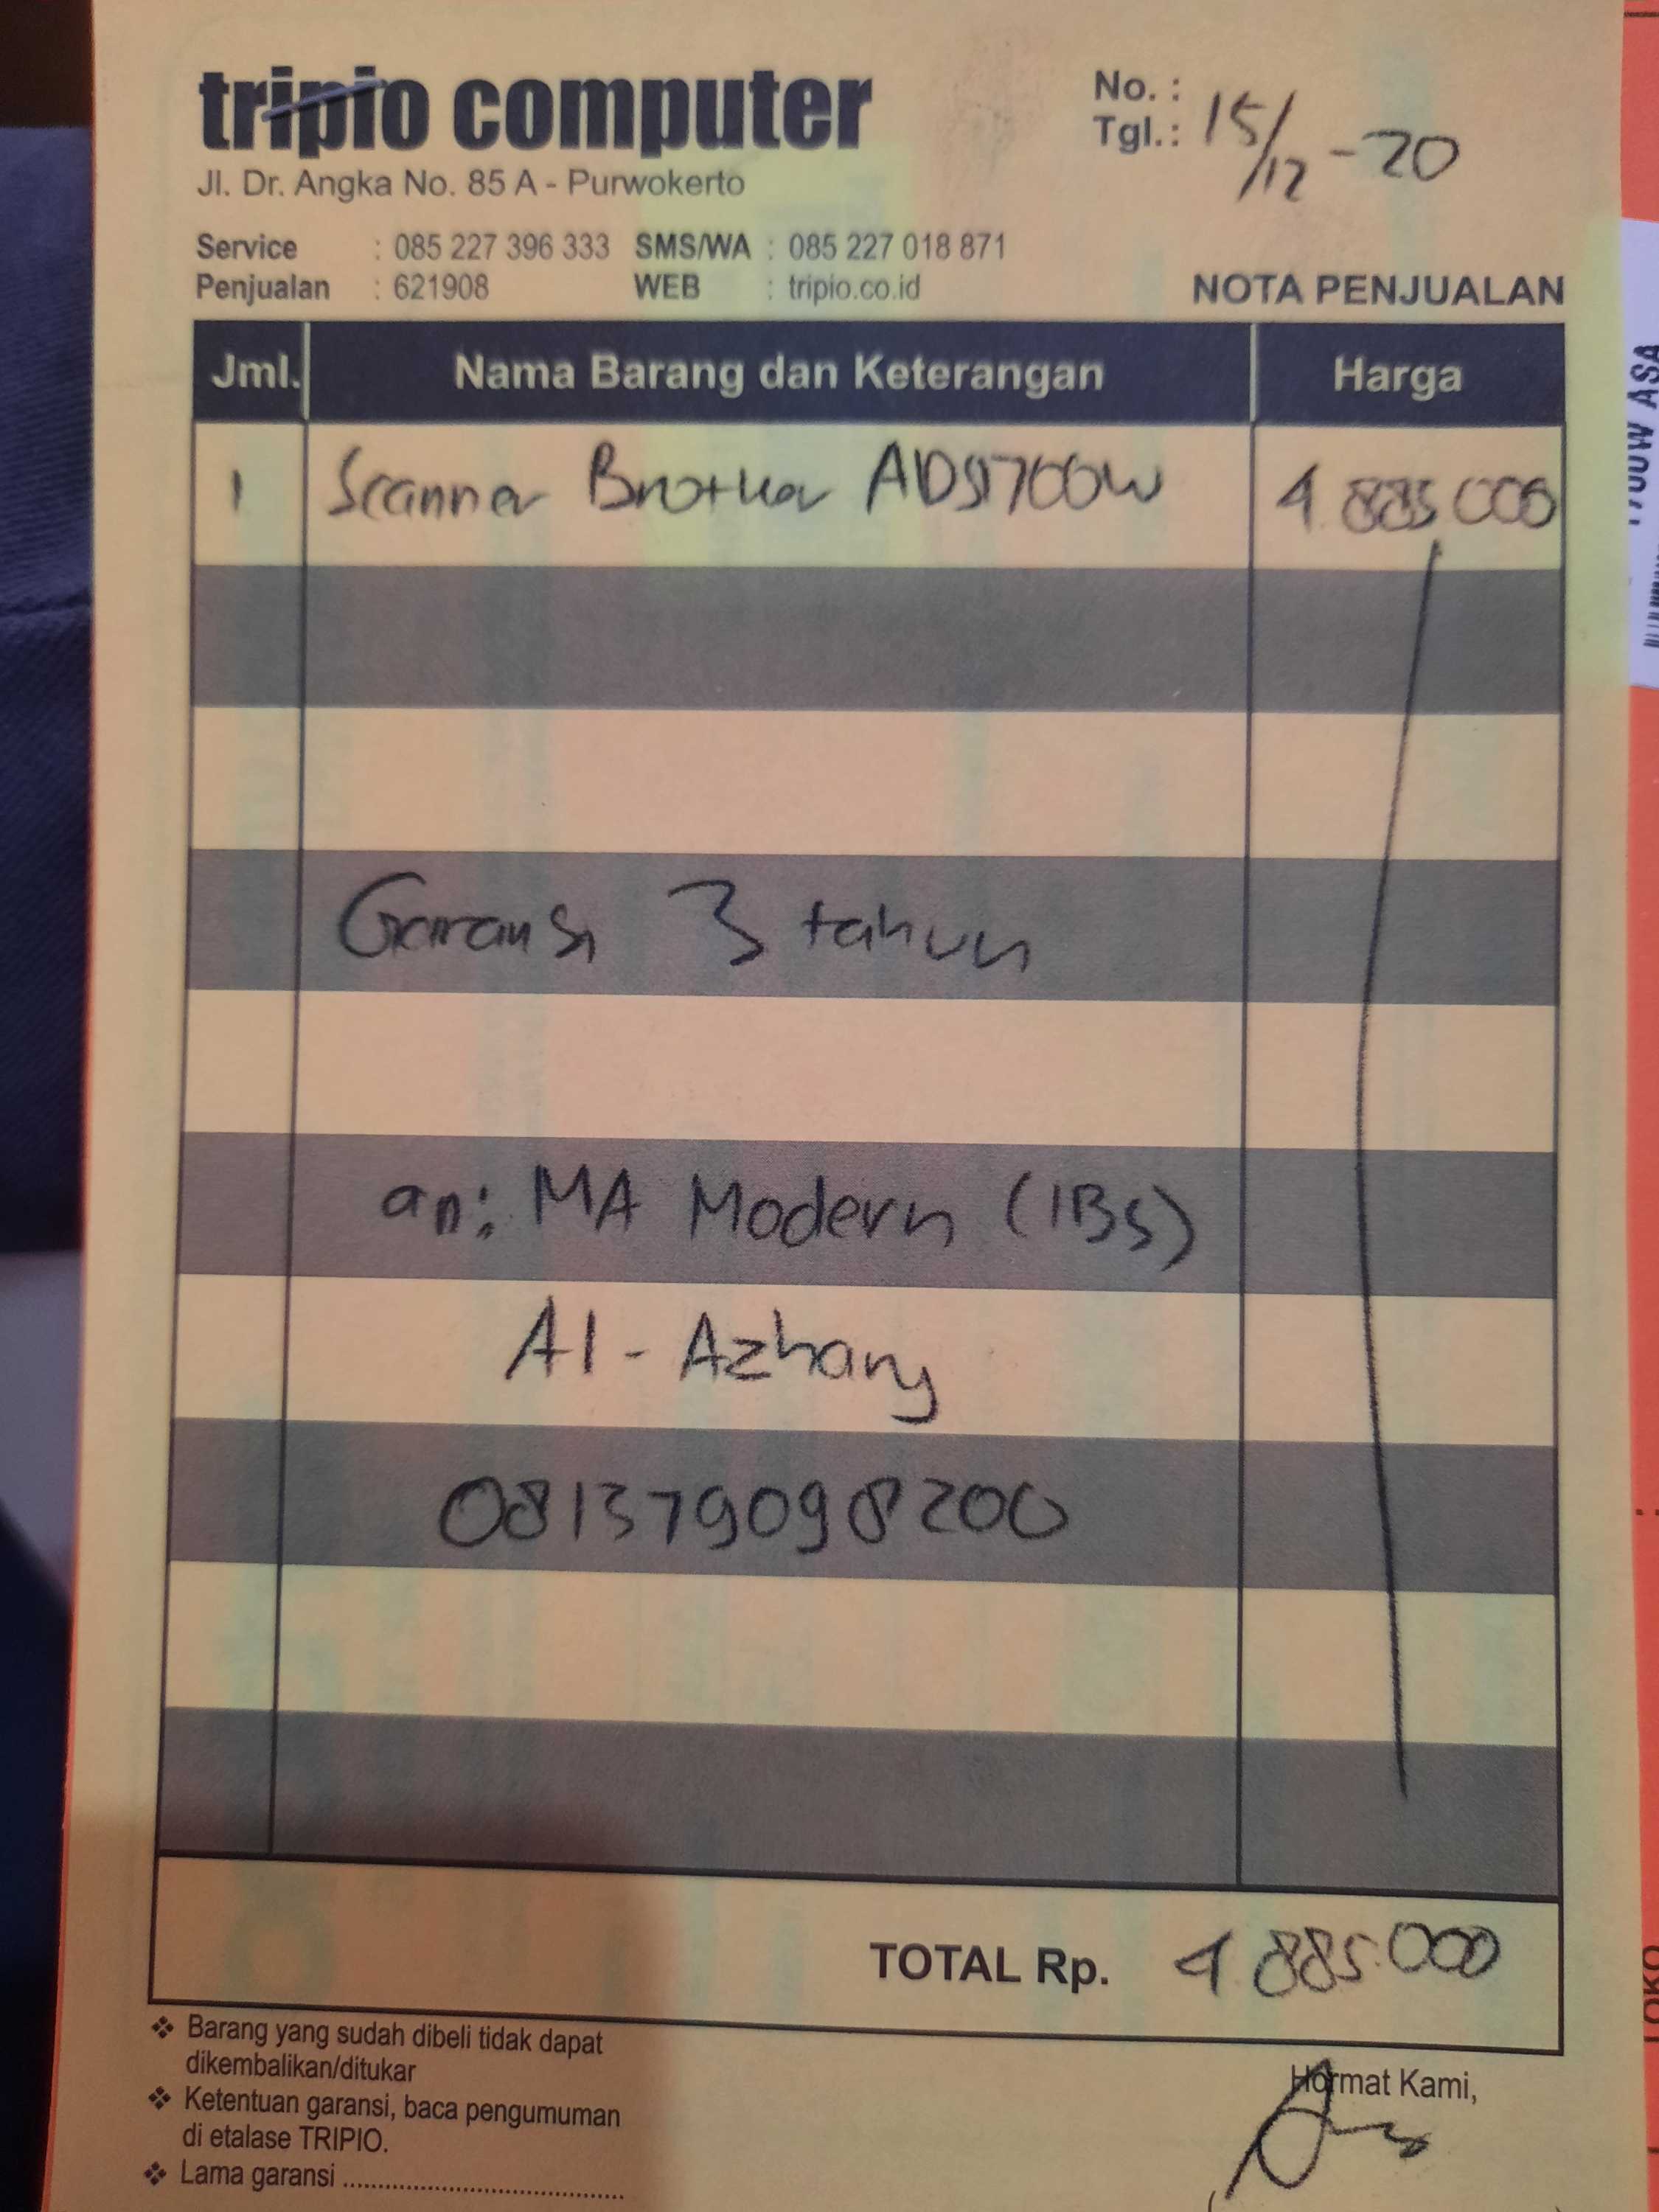 tripio computer
Jl. Dr. Angka No. 85 A - Purwokerto
No. :
Tgl.: 15/12 - 20
Service : 085 227 396 333 SMS/WA : 085 227 018 871
Penjualan : 621908 WEB : tripio.co.id
NOTA PENJUALAN
Jml. Nama Barang dan Keterangan Harga
1 Scanner Brother ADS1700W 4.885.000
Garansi 3 tahun
an: MA Modern (IBS)
Al-Azhary
081379098200
TOTAL Rp. 4.885.000
❖ Barang yang sudah dibeli tidak dapat
dikembalikan/ditukar
❖ Ketentuan garansi, baca pengumuman
di etalase TRIPIO.
❖ Lama garansi ........................................
Hormat Kami,
1700W ASA
TOKO